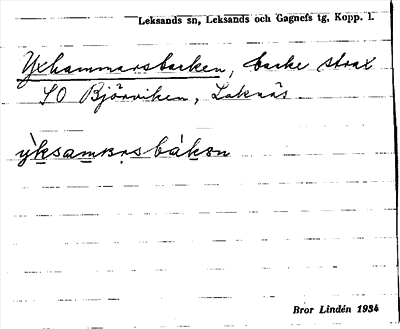 Leksands sn, Leksands och Gagnefs tg, Kopp. l.
Yxhammarsbacken, backe strax
SO Björviken, Laknäs
ỳksamarsbákən
Bror Lindén 1934